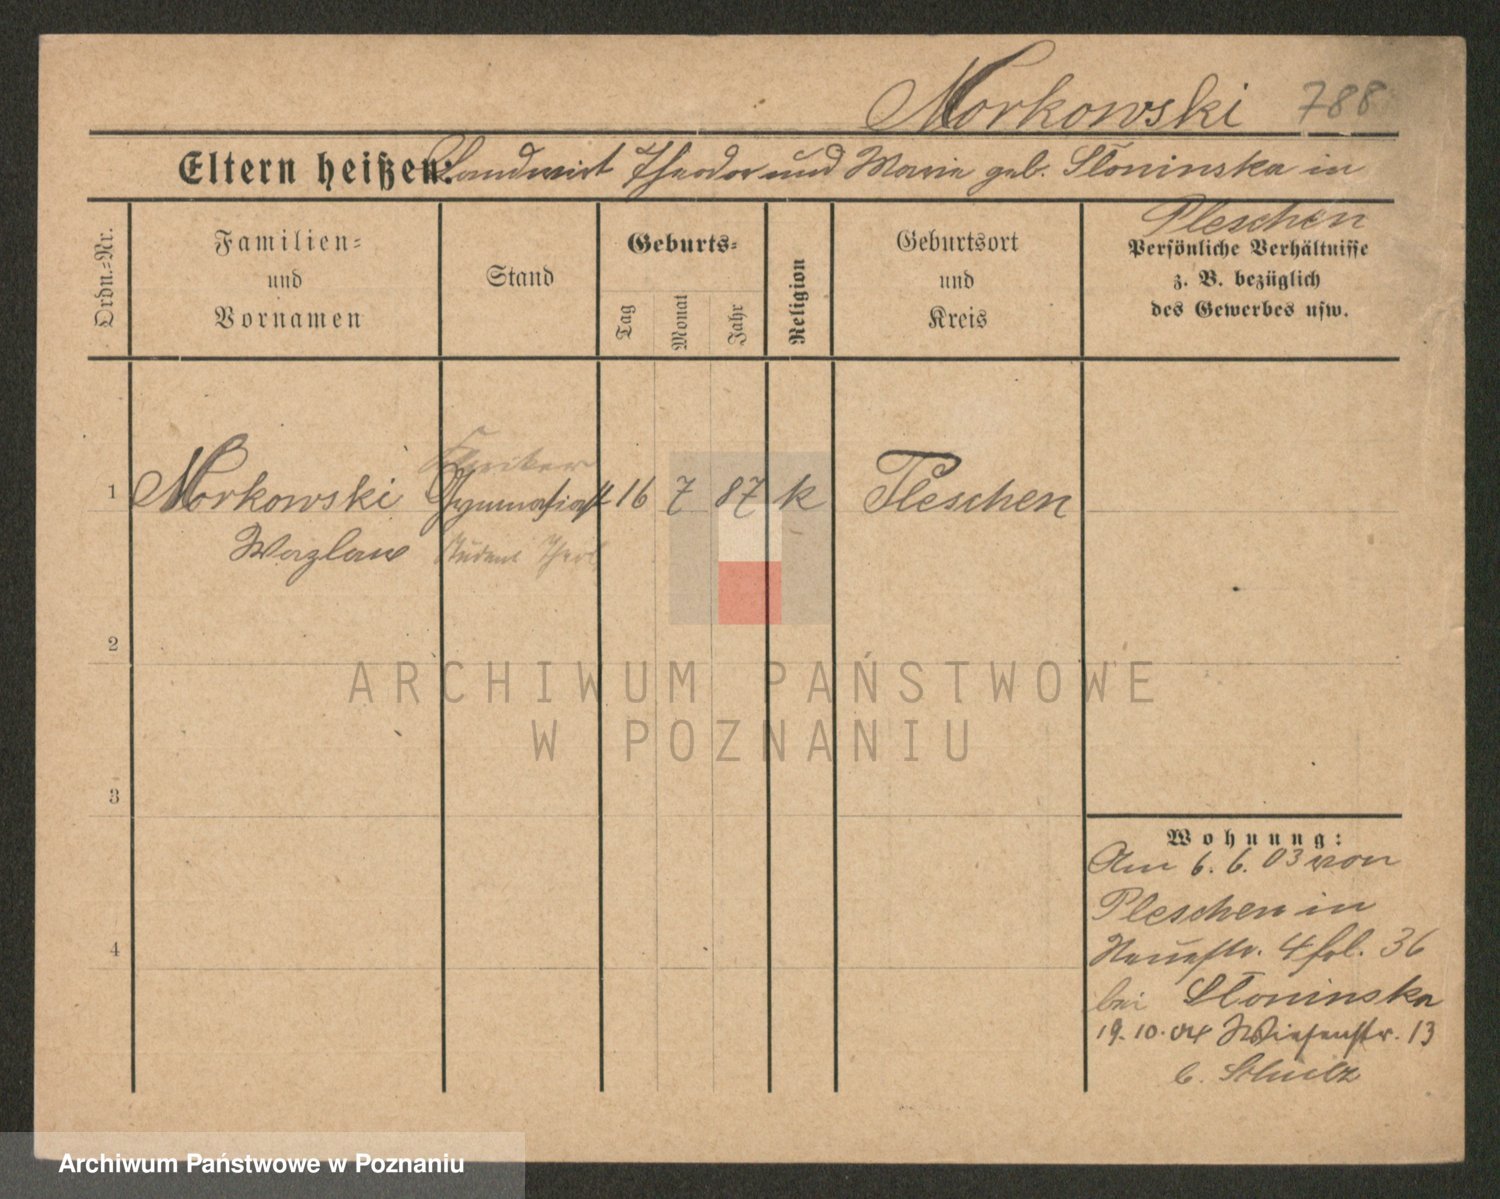 Morkowski 788
Eltern heißen: Landwirt Theodor und Marie geb. Słoninska in
Pleschen
Ordn.-Nr.
Familien-
und
Vornamen
Stand
Geburts-
Tag
Monat
Jahr
Religion
Geburtsort
und
Kreis
Persönliche Verhältnisse
z. B. bezüglich
des Gewerbes usw.
1 Morkowski Gymnasiast 16 7 87 k Pleschen
Wazlaw Student Theol
2
3
4
Wohnung:
Am 6.6.03 von
Pleschen in
Neuestr. 4 fol. 36
bei Słoninska
19.10.04 Wiesenstr. 13
b. Schulz
ARCHIWUM PAŃSTWOWE
W POZNANIU
Archiwum Państwowe w Poznaniu